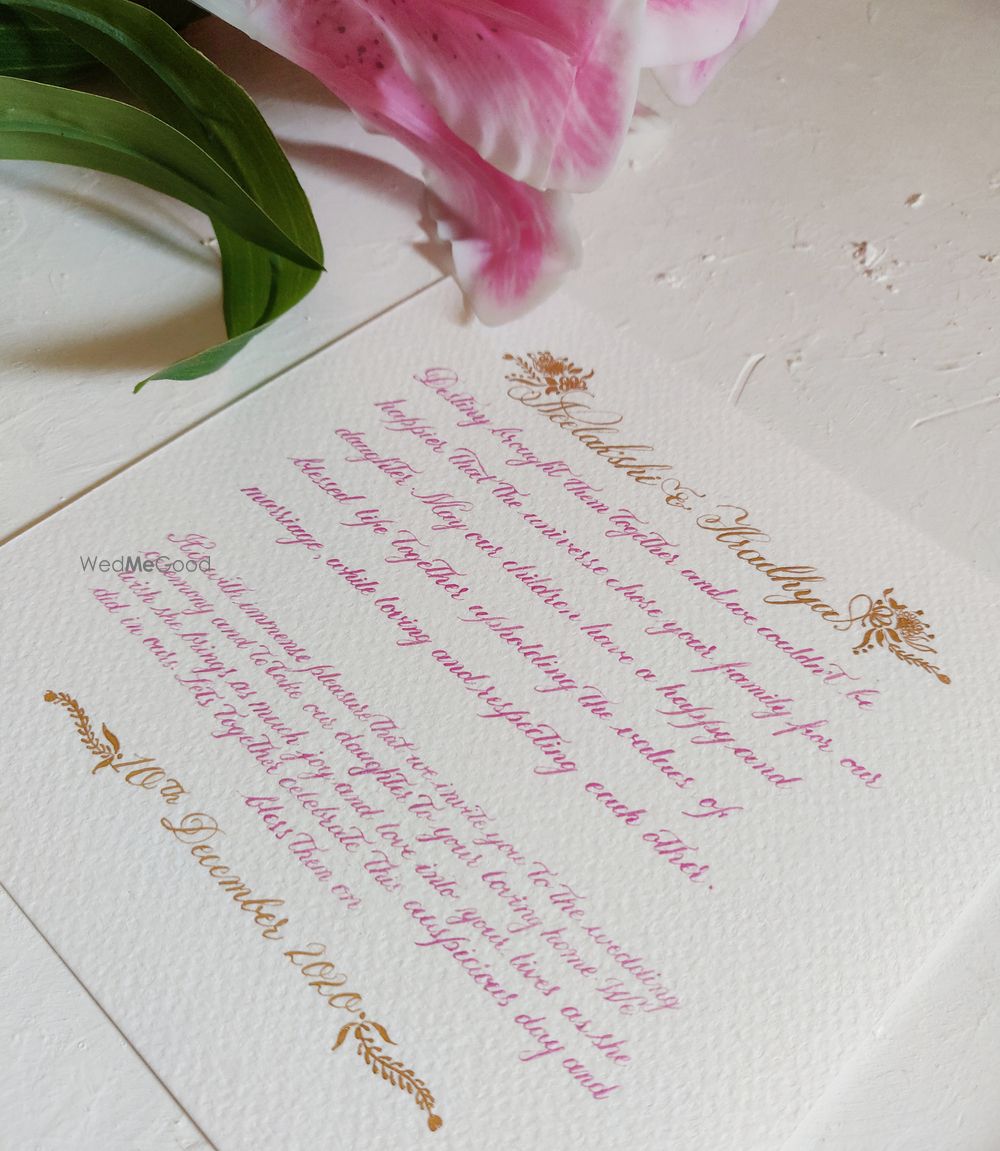 Neelakshi & Aradhya
Destiny brought them together and we couldn't be
happier that the universe chose your family for our
daughter. May our children have a happy and
blessed life together upholding the values of
marriage, while loving and respecting each other.
It's with immense pleasure that we invite you to the wedding
ceremony and to take our daughter to your loving home. We
wish she brings as much joy and love into your lives as she
did in ours. Lets together celebrate this auspicious day and
bless them on
10th December 2020.
WedMeGood